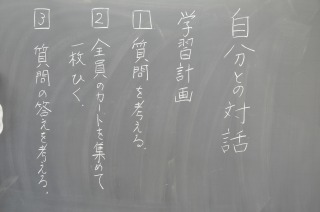 自分との対話
学習計画
1 質問を考える。
2 全員のカードを集めて
一枚ひく。
3 質問の答えを考える。